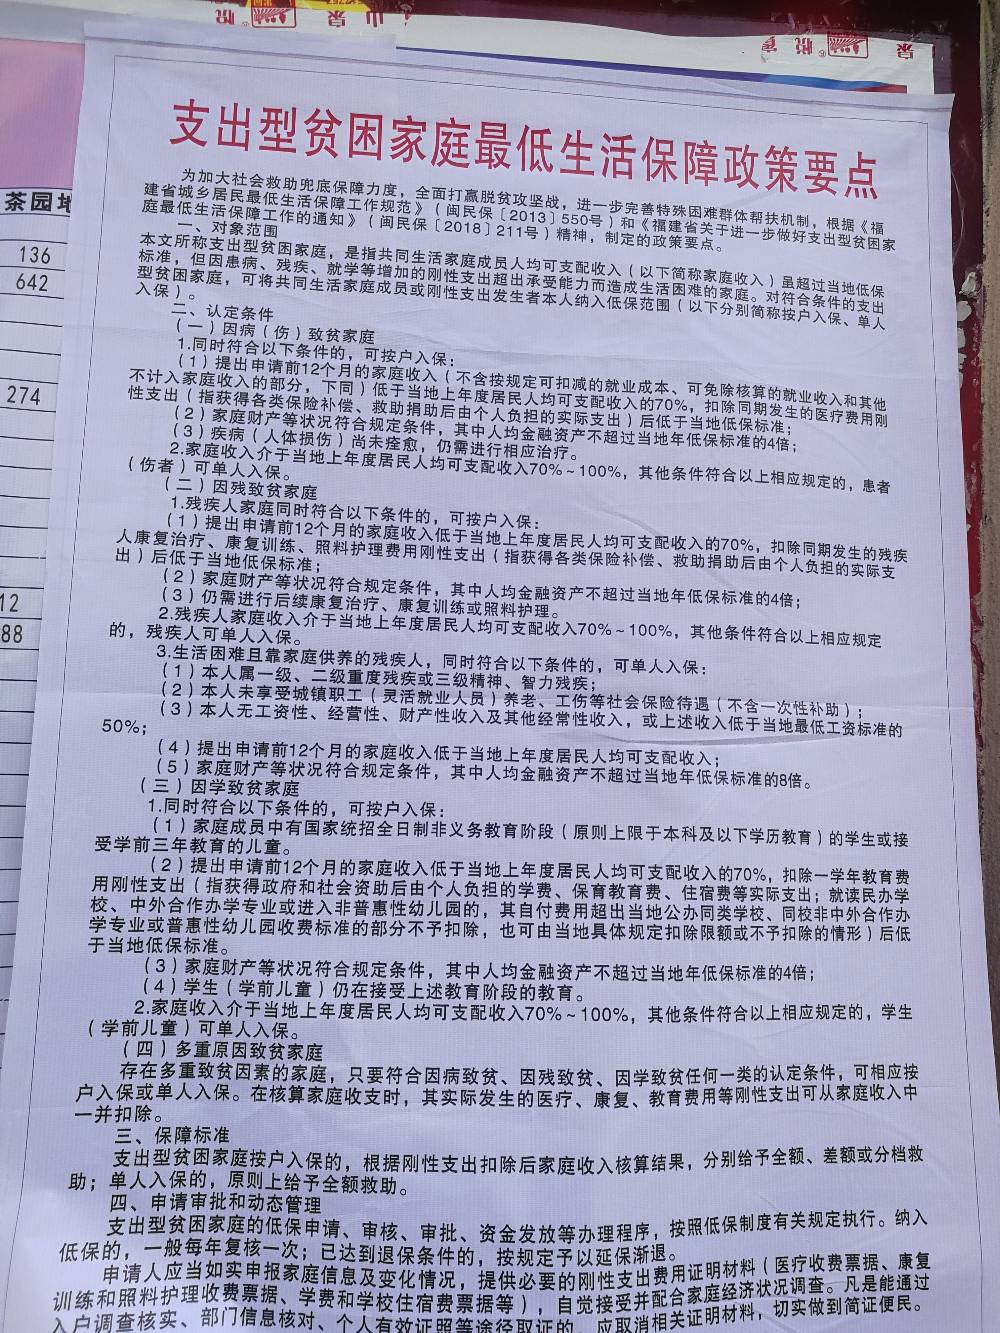 茶园地
136
642
274
12
88
支出型贫困家庭最低生活保障政策要点
为加大社会救助兜底保障力度，全面打赢脱贫攻坚战，进一步完善特殊困难群体帮扶机制，根据《福
建省城乡居民最低生活保障工作规范》（闽民保〔2013〕550号）和《福建省关于进一步做好支出型贫困家
庭最低生活保障工作的通知》（闽民保〔2018〕211号）精神，制定的政策要点。
一、对象范围
本文所称支出型贫困家庭，是指共同生活家庭成员人均可支配收入（以下简称家庭收入）虽超过当地低保
标准，但因患病、残疾、就学等增加的刚性支出超出承受能力而造成生活困难的家庭。对符合条件的支出
型贫困家庭，可将共同生活家庭成员或刚性支出发生者本人纳入低保范围（以下分别简称按户入保、单人
入保）。
二、认定条件
（一）因病（伤）致贫家庭
1.同时符合以下条件的，可按户入保：
（1）提出申请前12个月的家庭收入（不含按规定可扣减的就业成本、可免除核算的就业收入和其他
不计入家庭收入的部分，下同）低于当地上年度居民人均可支配收入的70%，扣除同期发生的医疗费用刚
性支出（指获得各类保险补偿、救助捐助后由个人负担的实际支出）后低于当地低保标准；
（2）家庭财产等状况符合规定条件，其中人均金融资产不超过当地年低保标准的4倍；
（3）疾病（人体损伤）尚未痊愈，仍需进行相应治疗。
2.家庭收入介于当地上年度居民人均可支配收入70%～100%，其他条件符合以上相应规定的，患者
（伤者）可单人入保。
（二）因残致贫家庭
1.残疾人家庭同时符合以下条件的，可按户入保：
（1）提出申请前12个月的家庭收入低于当地上年度居民人均可支配收入的70%，扣除同期发生的残疾
人康复治疗、康复训练、照料护理费用刚性支出（指获得各类保险补偿、救助捐助后由个人负担的实际支
出）后低于当地低保标准；
（2）家庭财产等状况符合规定条件，其中人均金融资产不超过当地年低保标准的4倍；
（3）仍需进行后续康复治疗、康复训练或照料护理。
2.残疾人家庭收入介于当地上年度居民人均可支配收入70%～100%，其他条件符合以上相应规定
的，残疾人可单人入保。
3.生活困难且靠家庭供养的残疾人，同时符合以下条件的，可单人入保：
（1）本人属一级、二级重度残疾或三级精神、智力残疾；
（2）本人未享受城镇职工（灵活就业人员）养老、工伤等社会保险待遇（不含一次性补助）；
（3）本人无工资性、经营性、财产性收入及其他经常性收入，或上述收入低于当地最低工资标准的
50%；
（4）提出申请前12个月的家庭收入低于当地上年度居民人均可支配收入；
（5）家庭财产等状况符合规定条件，其中人均金融资产不超过当地年低保标准的8倍。
（三）因学致贫家庭
1.同时符合以下条件的，可按户入保：
（1）家庭成员中有国家统招全日制非义务教育阶段（原则上限于本科及以下学历教育）的学生或接
受学前三年教育的儿童。
（2）提出申请前12个月的家庭收入低于当地上年度居民人均可支配收入的70%，扣除一学年教育费
用刚性支出（指获得政府和社会资助后由个人负担的学费、保育教育费、住宿费等实际支出；就读民办学
校、中外合作办学专业或进入非普惠性幼儿园的，其自付费用超出当地公办同类学校、同校非中外合作办
学专业或普惠性幼儿园收费标准的部分不予扣除，也可由当地具体规定扣除限额或不予扣除的情形）后低
于当地低保标准。
（3）家庭财产等状况符合规定条件，其中人均金融资产不超过当地年低保标准的4倍；
（4）学生（学前儿童）仍在接受上述教育阶段的教育。
2.家庭收入介于当地上年度居民人均可支配收入70%～100%，其他条件符合以上相应规定的，学生
（学前儿童）可单人入保。
（四）多重原因致贫家庭
存在多重致贫因素的家庭，只要符合因病致贫、因残致贫、因学致贫任何一类的认定条件，可相应按
户入保或单人入保。在核算家庭收支时，其实际发生的医疗、康复、教育费用等刚性支出可从家庭收入中
一并扣除。
三、保障标准
支出型贫困家庭按户入保的，根据刚性支出扣除后家庭收入核算结果，分别给予全额、差额或分档救
助；单人入保的，原则上给予全额救助。
四、申请审批和动态管理
支出型贫困家庭的低保申请、审核、审批、资金发放等办理程序，按照低保制度有关规定执行。纳入
低保的，一般每年复核一次；已达到退保条件的，按规定予以延保渐退。
申请人应当如实申报家庭信息及变化情况，提供必要的刚性支出费用证明材料（医疗收费票据、康复
训练和照料护理收费票据、学费和学校住宿费票据等），自觉接受并配合家庭经济状况调查。凡是能通过
入户调查核实、部门信息核对、个人有效证照等途径取证的，应取消相关证明材料，切实做到简证便民。